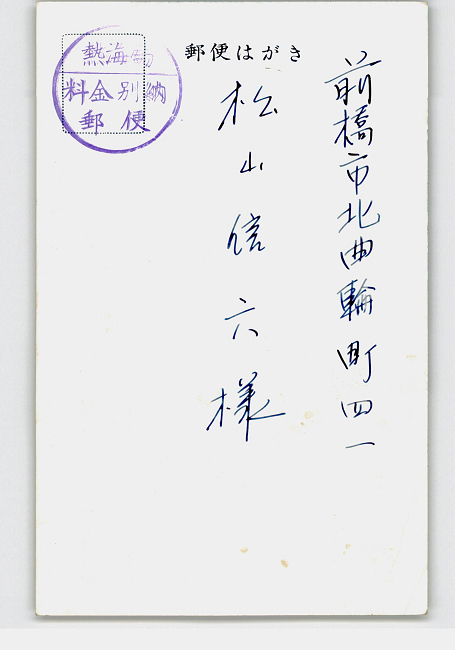 郵便はがき
熱海局
料金別納
郵便
前橋市北曲輪町四一
松山信六様